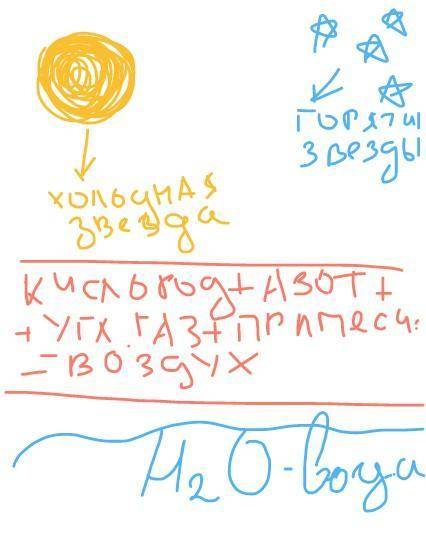 ХОЛОДНАЯ
звезда
ЗВЕЗДЫ
Кислород+АЗОТ+
+УГЛ.ГАЗ+ПРИМЕСИ=
=ВОЗДУХ
H₂O-вода